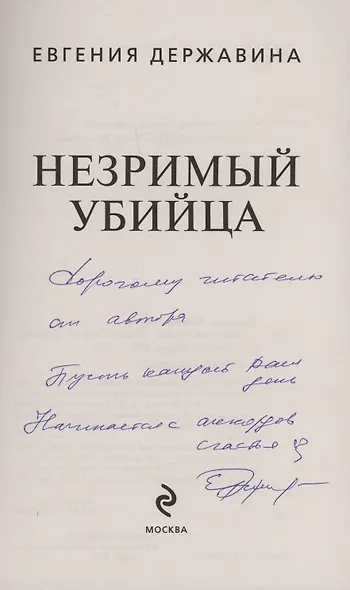 ЕВГЕНИЯ ДЕРЖАВИНА
НЕЗРИМЫЙ
УБИЙЦА
Дорогому читателю
от автора
Пусть каждый Ваш
день
Начинается с аккордов
счастья
МОСКВА